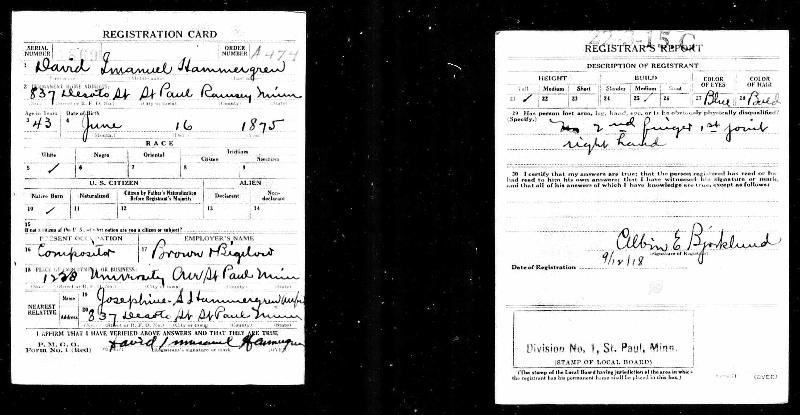 REGISTRATION CARD
SERIAL NUMBER
ORDER NUMBER A474
1 David Imanuel Hammergren
2 PERMANENT HOME ADDRESS:
837 Desoto St St Paul Ramsey Minn
Age in Years Date of Birth
3 43 4 June 16 1875
RACE
White Negro Oriental Indian
Citizen Noncitizen
5 ✓ 6 7 8 9
U. S. CITIZEN ALIEN
Native Born Naturalized Citizen by Father's Naturalization Before Registrant's Majority Declarant Non-declarant
10 ✓ 11 12 13 14
15
If not a citizen of the U. S., of what nation are you a citizen or subject?
PRESENT OCCUPATION EMPLOYER'S NAME
16 Compositor 17 Brown & Bigelow
18 PLACE OF EMPLOYMENT OR BUSINESS:
University Ave St Paul Minn
NEAREST RELATIVE
Name 19 Josephine S Hammergren
Address 20 837 Desoto St St Paul Minn
I AFFIRM THAT I HAVE VERIFIED ABOVE ANSWERS AND THAT THEY ARE TRUE
P. M. G. O.
Form No. 1 (Red)
David Immanuel Hammergren
(Registrant's signature or mark) (OVER)
REGISTRAR'S REPORT
DESCRIPTION OF REGISTRANT
HEIGHT BUILD COLOR OF EYES COLOR OF HAIR
Tall Medium Short Slender Medium Stout
21 ✓ 22 23 24 25 ✓ 26 27 Blue 28 Bald
29 Has person lost arm, leg, hand, eye, or is he obviously physically disqualified?
(Specify.) 2nd finger 1st joint
right hand
30 I certify that my answers are true; that the person registered has read or has had read to him his own answers; that I have witnessed his signature or mark, and that all of his answers of which I have knowledge are true, except as follows:
Albin E Bjorklund
(Signature of Registrar)
Date of Registration 9/12/18
Division No. 1, St. Paul, Minn.
(STAMP OF LOCAL BOARD)
(The stamp of the Local Board having jurisdiction of the area in which the registrant has his permanent home shall be placed in this box.)
(OVER)